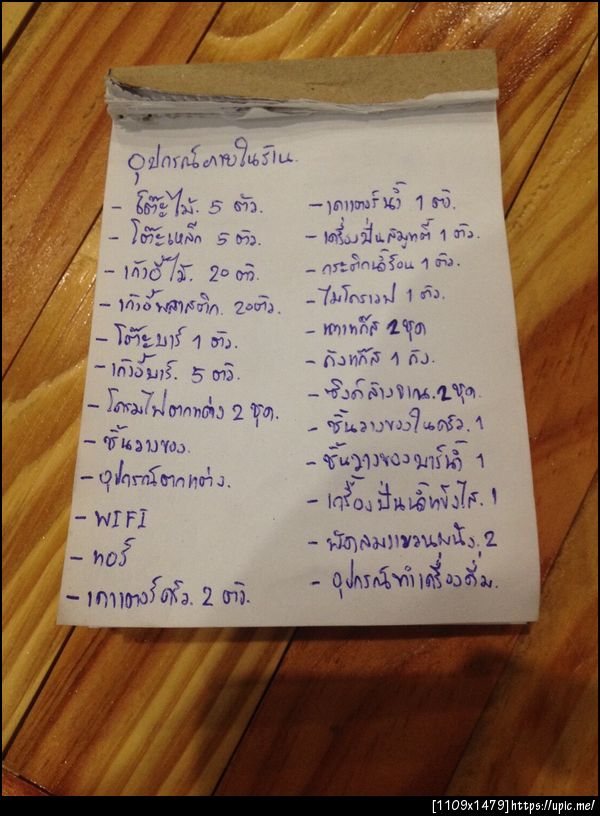 อุปกรณ์ภายในร้าน.
- โต๊ะไม้. 5 ตัว.
- โต๊ะเหล็ก 5 ตัว.
- เก้าอี้ไม้. 20 ตัว.
- เก้าอี้พลาสติก. 20ตัว.
- โต๊ะบาร์ 1 ตัว.
- เก้าอี้บาร์. 5 ตัว.
- โคมไฟตกแต่ง 2 ชุด.
- ชั้นวางของ.
- อุปกรณ์ตกแต่ง.
- WIFI
- แอร์
- เคาเตอร์ครัว. 2 ตัว.
- เคาเตอร์น้ำ 1 ตัว.
- เครื่องปั่นสมูทตี้ 1 ตัว.
- กระติกน้ำร้อน 1 ตัว.
- ไมโครเวฟ 1 ตัว.
- เตาแก๊ส 2 ชุด
- ถังแก๊ส 1 ถัง.
- ซิงค์ล้างจาน. 2 ชุด.
- ชั้นวางของในครัว. 1
- ชั้นวางของบาร์น้ำ 1
- เครื่องปั่นน้ำแข็งใส. 1
- พัดลมแขวนผนัง. 2
- อุปกรณ์ทำเครื่องดื่ม.
[1109x1479]https://upic.me/